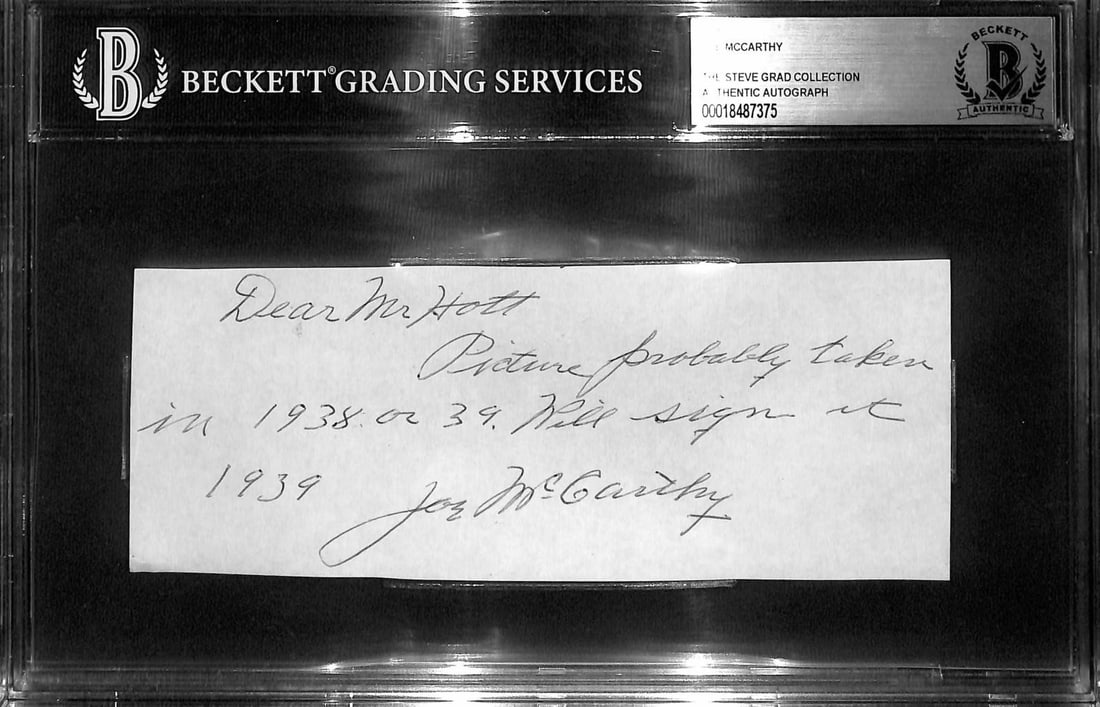 BECKETT® GRADING SERVICES
MCCARTHY
STEVE GRAD COLLECTION
AUTHENTIC AUTOGRAPH
00018487375
BECKETT
B
AUTHENTIC
B
Dear Mr Hott
Picture probably taken
in 1938 or 39. Will sign it
1939 Joe McCarthy